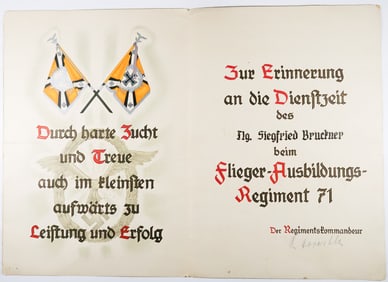 Durch harte Zucht
und Treue
auch im kleinsten
aufwärts zu
Leistung und Erfolg
Zur Erinnerung
an die Dienstzeit
des
Flg. Siegfried Bruckner
beim
Flieger-Ausbildungs-
Regiment 71
Der Regimentskommandeur